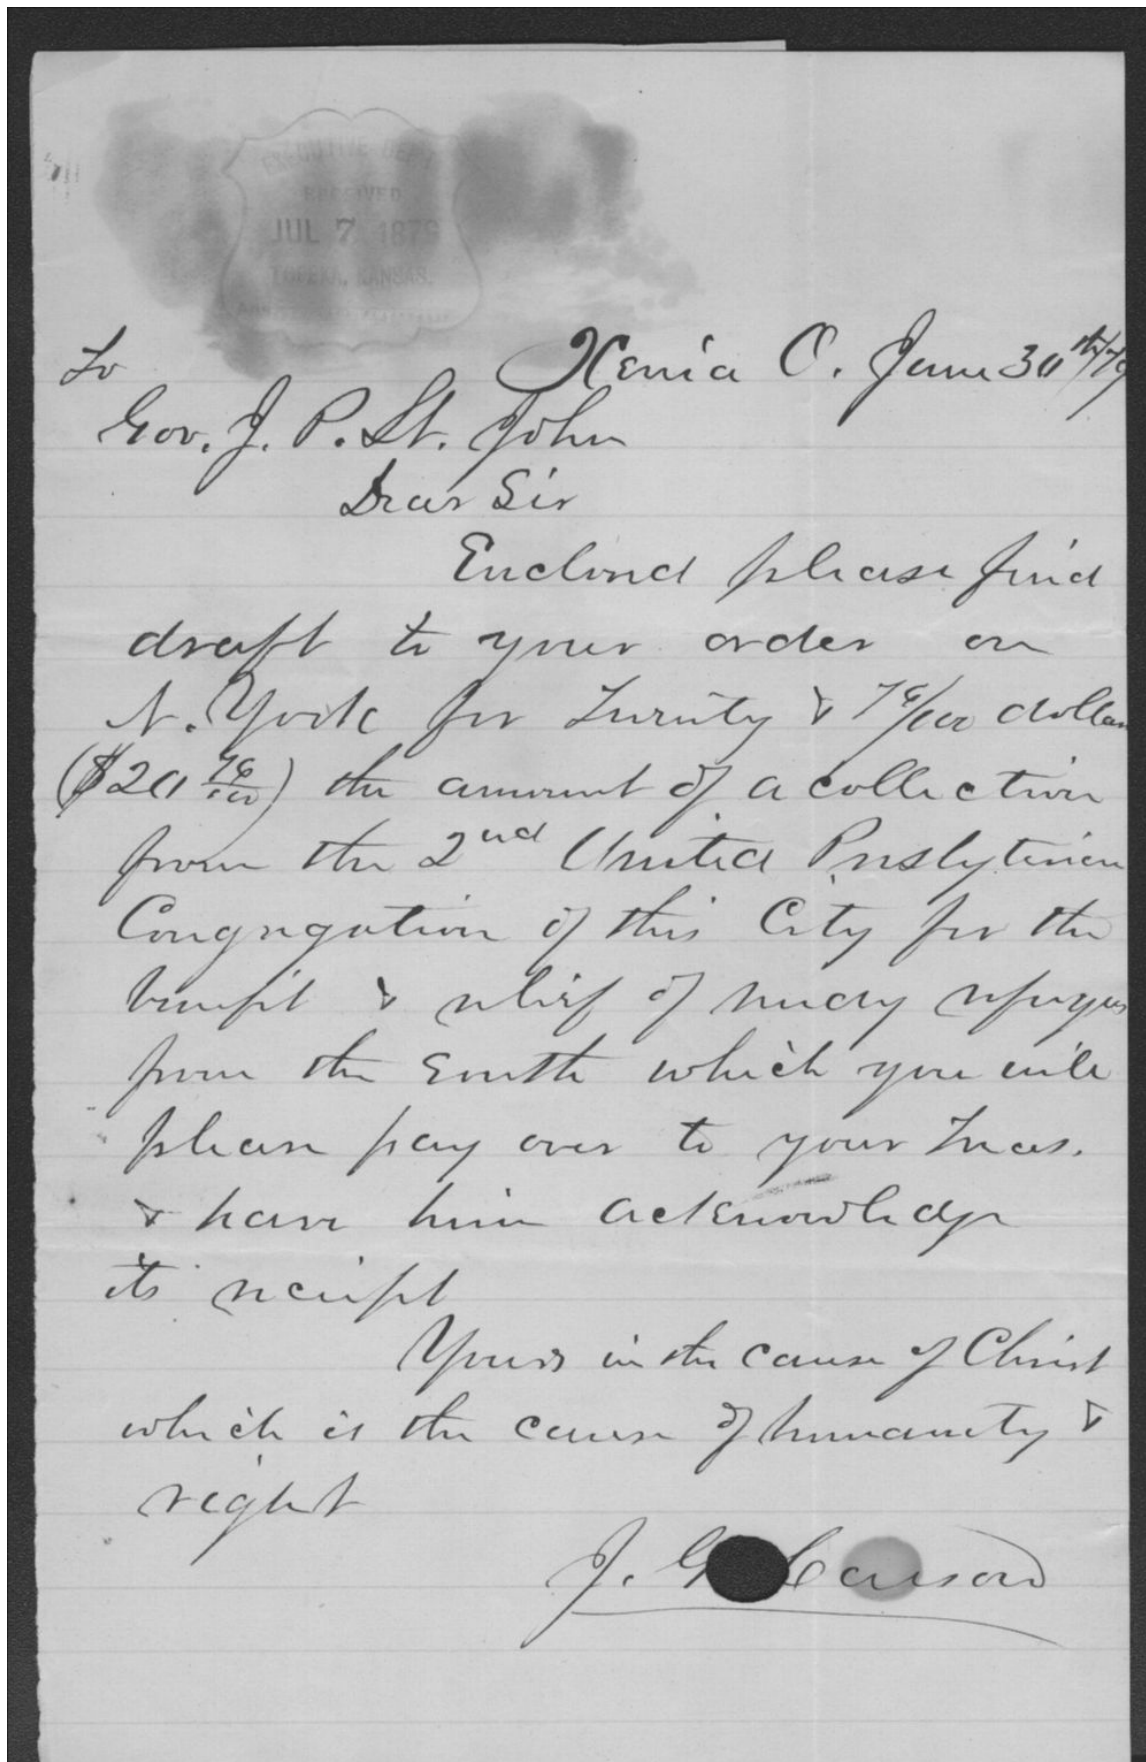 EXECUTIVE DEPT.
RECEIVED
JUL 7 1879
TOPEKA, KANSAS.
Xenia O. June 30th/79
To
Gov. J. P. St. John
Dear Sir
Enclosed please find
draft to your order on
N. York for Twenty & 76/100 dollars
($20 76/100) the amount of a collection
from the 2nd United Presbyterian
Congregation of this City for the
benefit & relief of needy refugees
from the South which you will
please pay over to your Treas.
& have him acknowledge
its receipt
Yours in the cause of Christ
which is the cause of humanity &
right
J. G. Carson